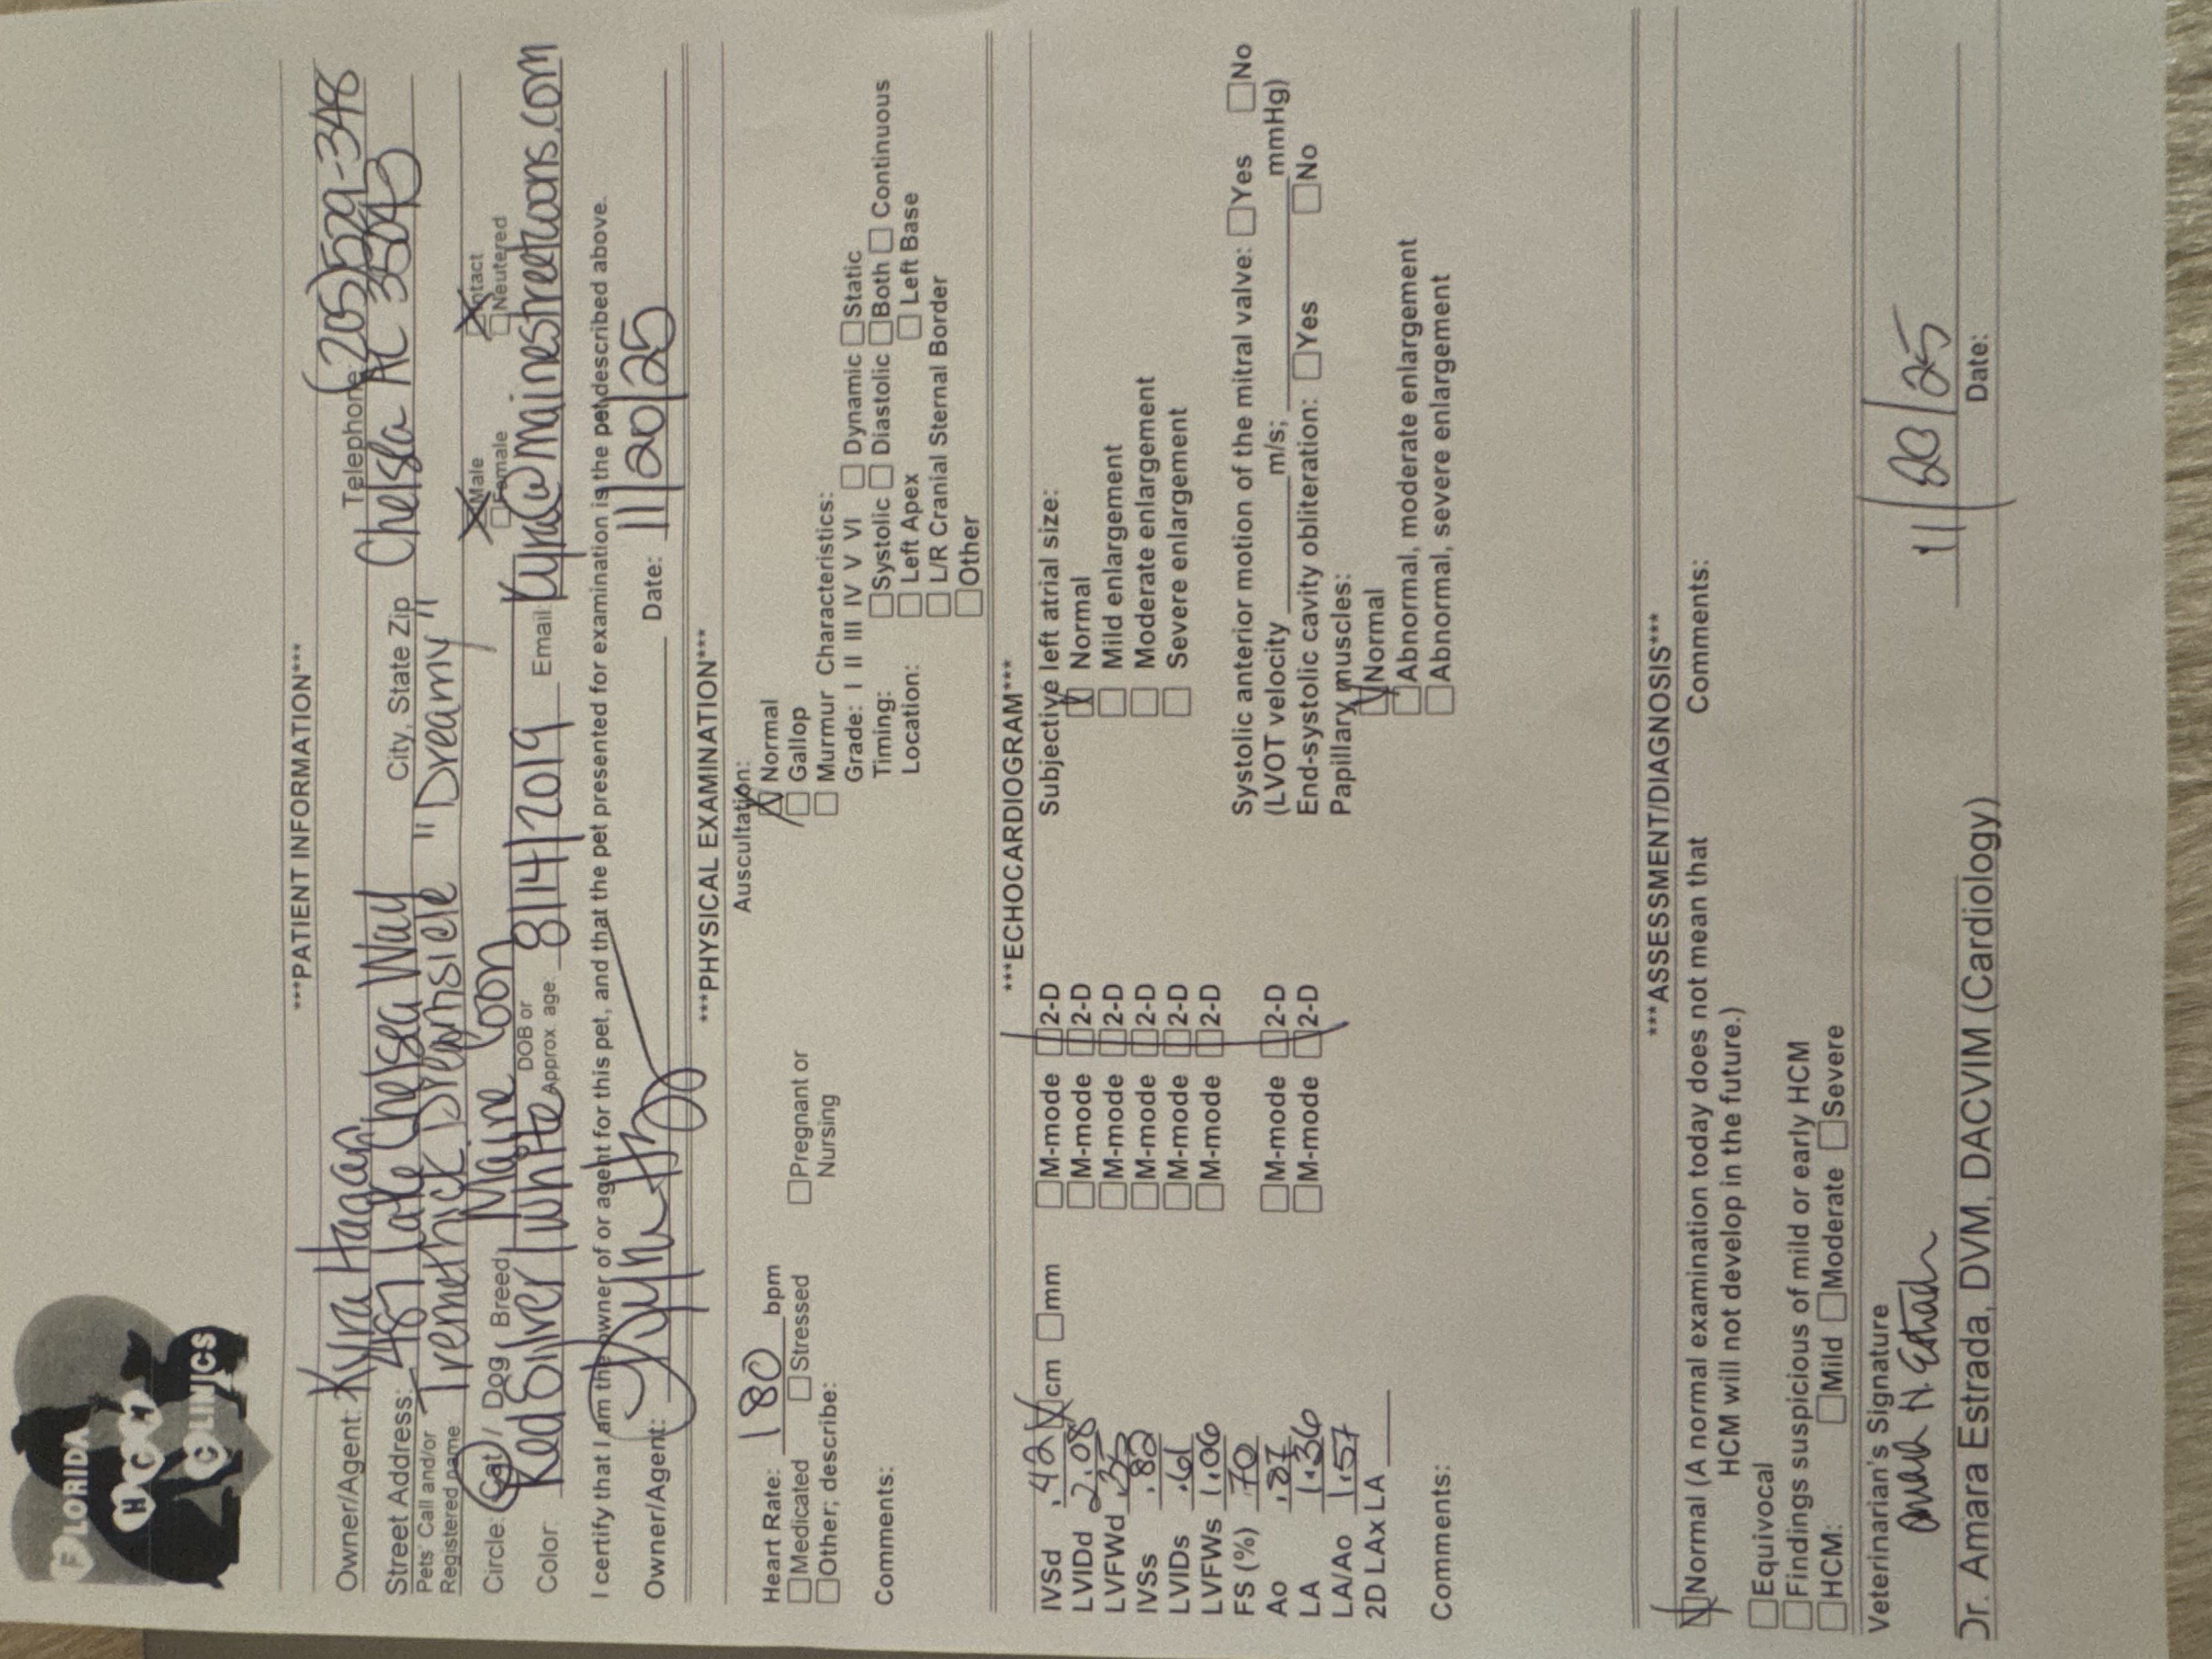 FLORIDA
HCM
CLINICS
***PATIENT INFORMATION***
Owner/Agent: Kyra Hagan Telephone: (205) 529-3418
Street Address: 487 Lake Chelsea Way City, State Zip Chelsea AL 35043
Pets' Call and/or
Registered name: Tremethick Dreamsicle "Dreamy"
Circle: Cat / Dog Breed: Maine Coon Male Intact
Female Neutered
Color: Red Silver/white DOB or Approx age: 8/14/2019 Email: Kyra@mainestreetcoons.com
I certify that I am the owner of or agent for this pet, and that the pet presented for examination is the pet described above.
Owner/Agent: Date: 11/20/25
***PHYSICAL EXAMINATION***
Heart Rate: 180 bpm
Medicated Stressed Pregnant or Nursing
Other; describe:
Comments:
Auscultation:
Normal
Gallop
Murmur Characteristics:
Grade: I II III IV V VI Dynamic Static
Timing: Systolic Diastolic Both Continuous
Location: Left Apex Left Base
L/R Cranial Sternal Border
Other
***ECHOCARDIOGRAM***
IVSd .42 cm mm M-mode 2-D
LVIDd 2.08 M-mode 2-D
LVFWd M-mode 2-D
IVSs .82 M-mode 2-D
LVIDs .61 M-mode 2-D
LVFWs 1.06 M-mode 2-D
FS (%) 70
Ao .87 M-mode 2-D
LA 1.36 M-mode 2-D
LA/Ao 1.57
2D LAx LA
Comments:
Subjective left atrial size:
Normal
Mild enlargement
Moderate enlargement
Severe enlargement
Systolic anterior motion of the mitral valve: Yes No
(LVOT velocity m/s; mmHg)
End-systolic cavity obliteration: Yes No
Papillary muscles:
Normal
Abnormal, moderate enlargement
Abnormal, severe enlargement
***ASSESSMENT/DIAGNOSIS***
Normal (A normal examination today does not mean that
HCM will not develop in the future.)
Equivocal
Findings suspicious of mild or early HCM
HCM: Mild Moderate Severe
Comments:
Veterinarian's Signature
Amara H. Estrada 11/20/25
Dr. Amara Estrada, DVM, DACVIM (Cardiology) Date: